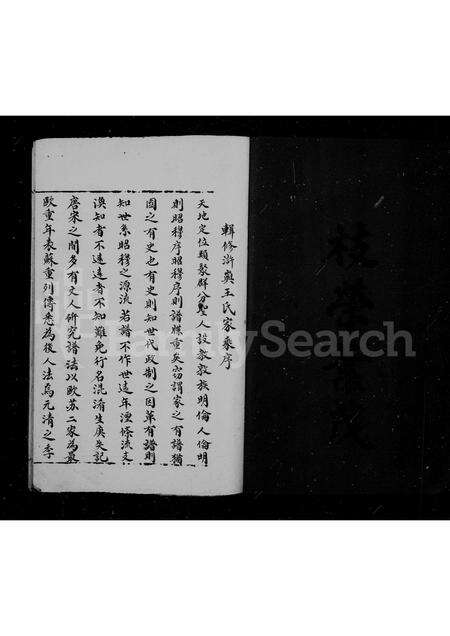 輯修滸奧王氏家乘序
天地定位類聚群分聖人設教敦族明倫人倫明
則昭穆序昭穆序則譜牒重矣窃謂家之有譜猶
國之有史也有史則知世代政制之因革有譜則
知世系昭穆之源流若譜不作世遠年湮條流支
漠知者不遠遠者不知難免行名混淆生庚失記
唐宋之間多有文人研究譜法以欧苏二家為最
欧重年表蘇重列傳悉為後人法焉元清之季
FamilySearch